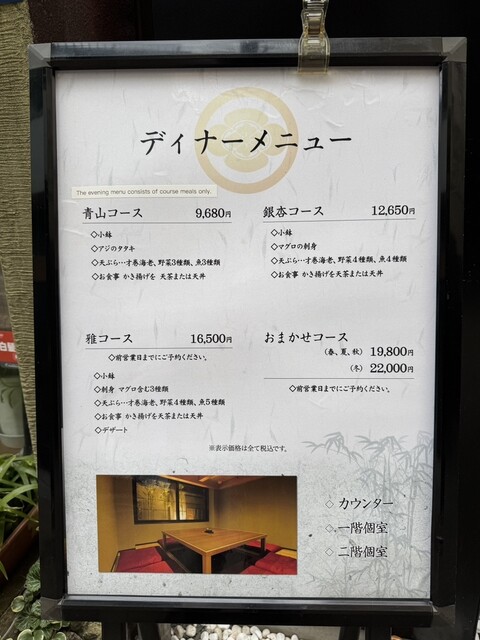 ディナーメニュー
The evening menu consists of course meals only.
青山コース 9,680円
◇小鉢
◇アジのタタキ
◇天ぷら…才巻海老、野菜3種類、魚3種類
◇お食事 かき揚げを 天茶または天丼
銀杏コース 12,650円
◇小鉢
◇マグロの刺身
◇天ぷら…才巻海老、野菜4種類、魚4種類
◇お食事 かき揚げを天茶または天丼
雅コース 16,500円
◇前営業日までにご予約ください。
◇小鉢
◇刺身 マグロ含む3種類
◇天ぷら…才巻海老、野菜4種類、魚5種類
◇お食事 かき揚げを天茶または天丼
◇デザート
おまかせコース
(春、夏、秋) 19,800円
(冬) 22,000円
◇前営業日までにご予約ください。
※表示価格は全て税込です。
◇ カウンター
◇ 一階個室
◇ 二階個室